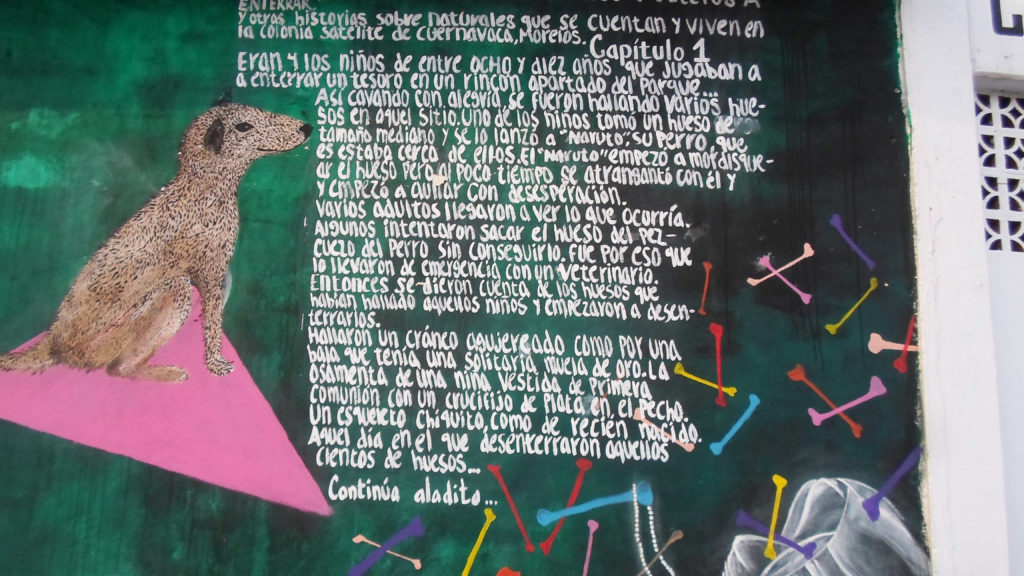 ENTERRAR.
Y otras historias sobre naturales que se cuentan y viven en
la colonia satelite de Cuernavaca, Morelos.
Capítulo 1
Eran y los niños de entre ocho y diez años que jugaban a
a enterrar un tesoro en un rincón apartado del parque...
Así cavando con alegría, se fueron hallando varios hue-
sos en aquel sitio. Uno de los niños tomo un hueso de
tamaño mediano y se lo lanzó a "Naruto", su perro, que
es estaba cerca de ellos. El "Naruto" empezó a mordisque-
ar el hueso pero a poco tiempo se atrangantó con él y
y empezó a aullar con desesperación.
Varios adultos llegaron a ver lo que ocurría.
Algunos intentaron sacar el hueso del pez-
cuezo del perro sin conseguirlo. Fue por eso que
lo llevaron de emergencia con un veterinario.
Entonces se dieron cuenta de los huesos que
habían hallado aquellos niños y empezaron a desen-
terrarlos.
Hallaron un cráneo agujereado como por una
bala que tenía una solitaria muela de oro. La
osamenta de una niña vestida de primera
comunión con un crucifijo de plata en el pecho.
Un esqueleto chiquito, como de recién nacido.
Aquel día en el que desenterraron aquellos
cientos de huesos...
Continúa aladito...